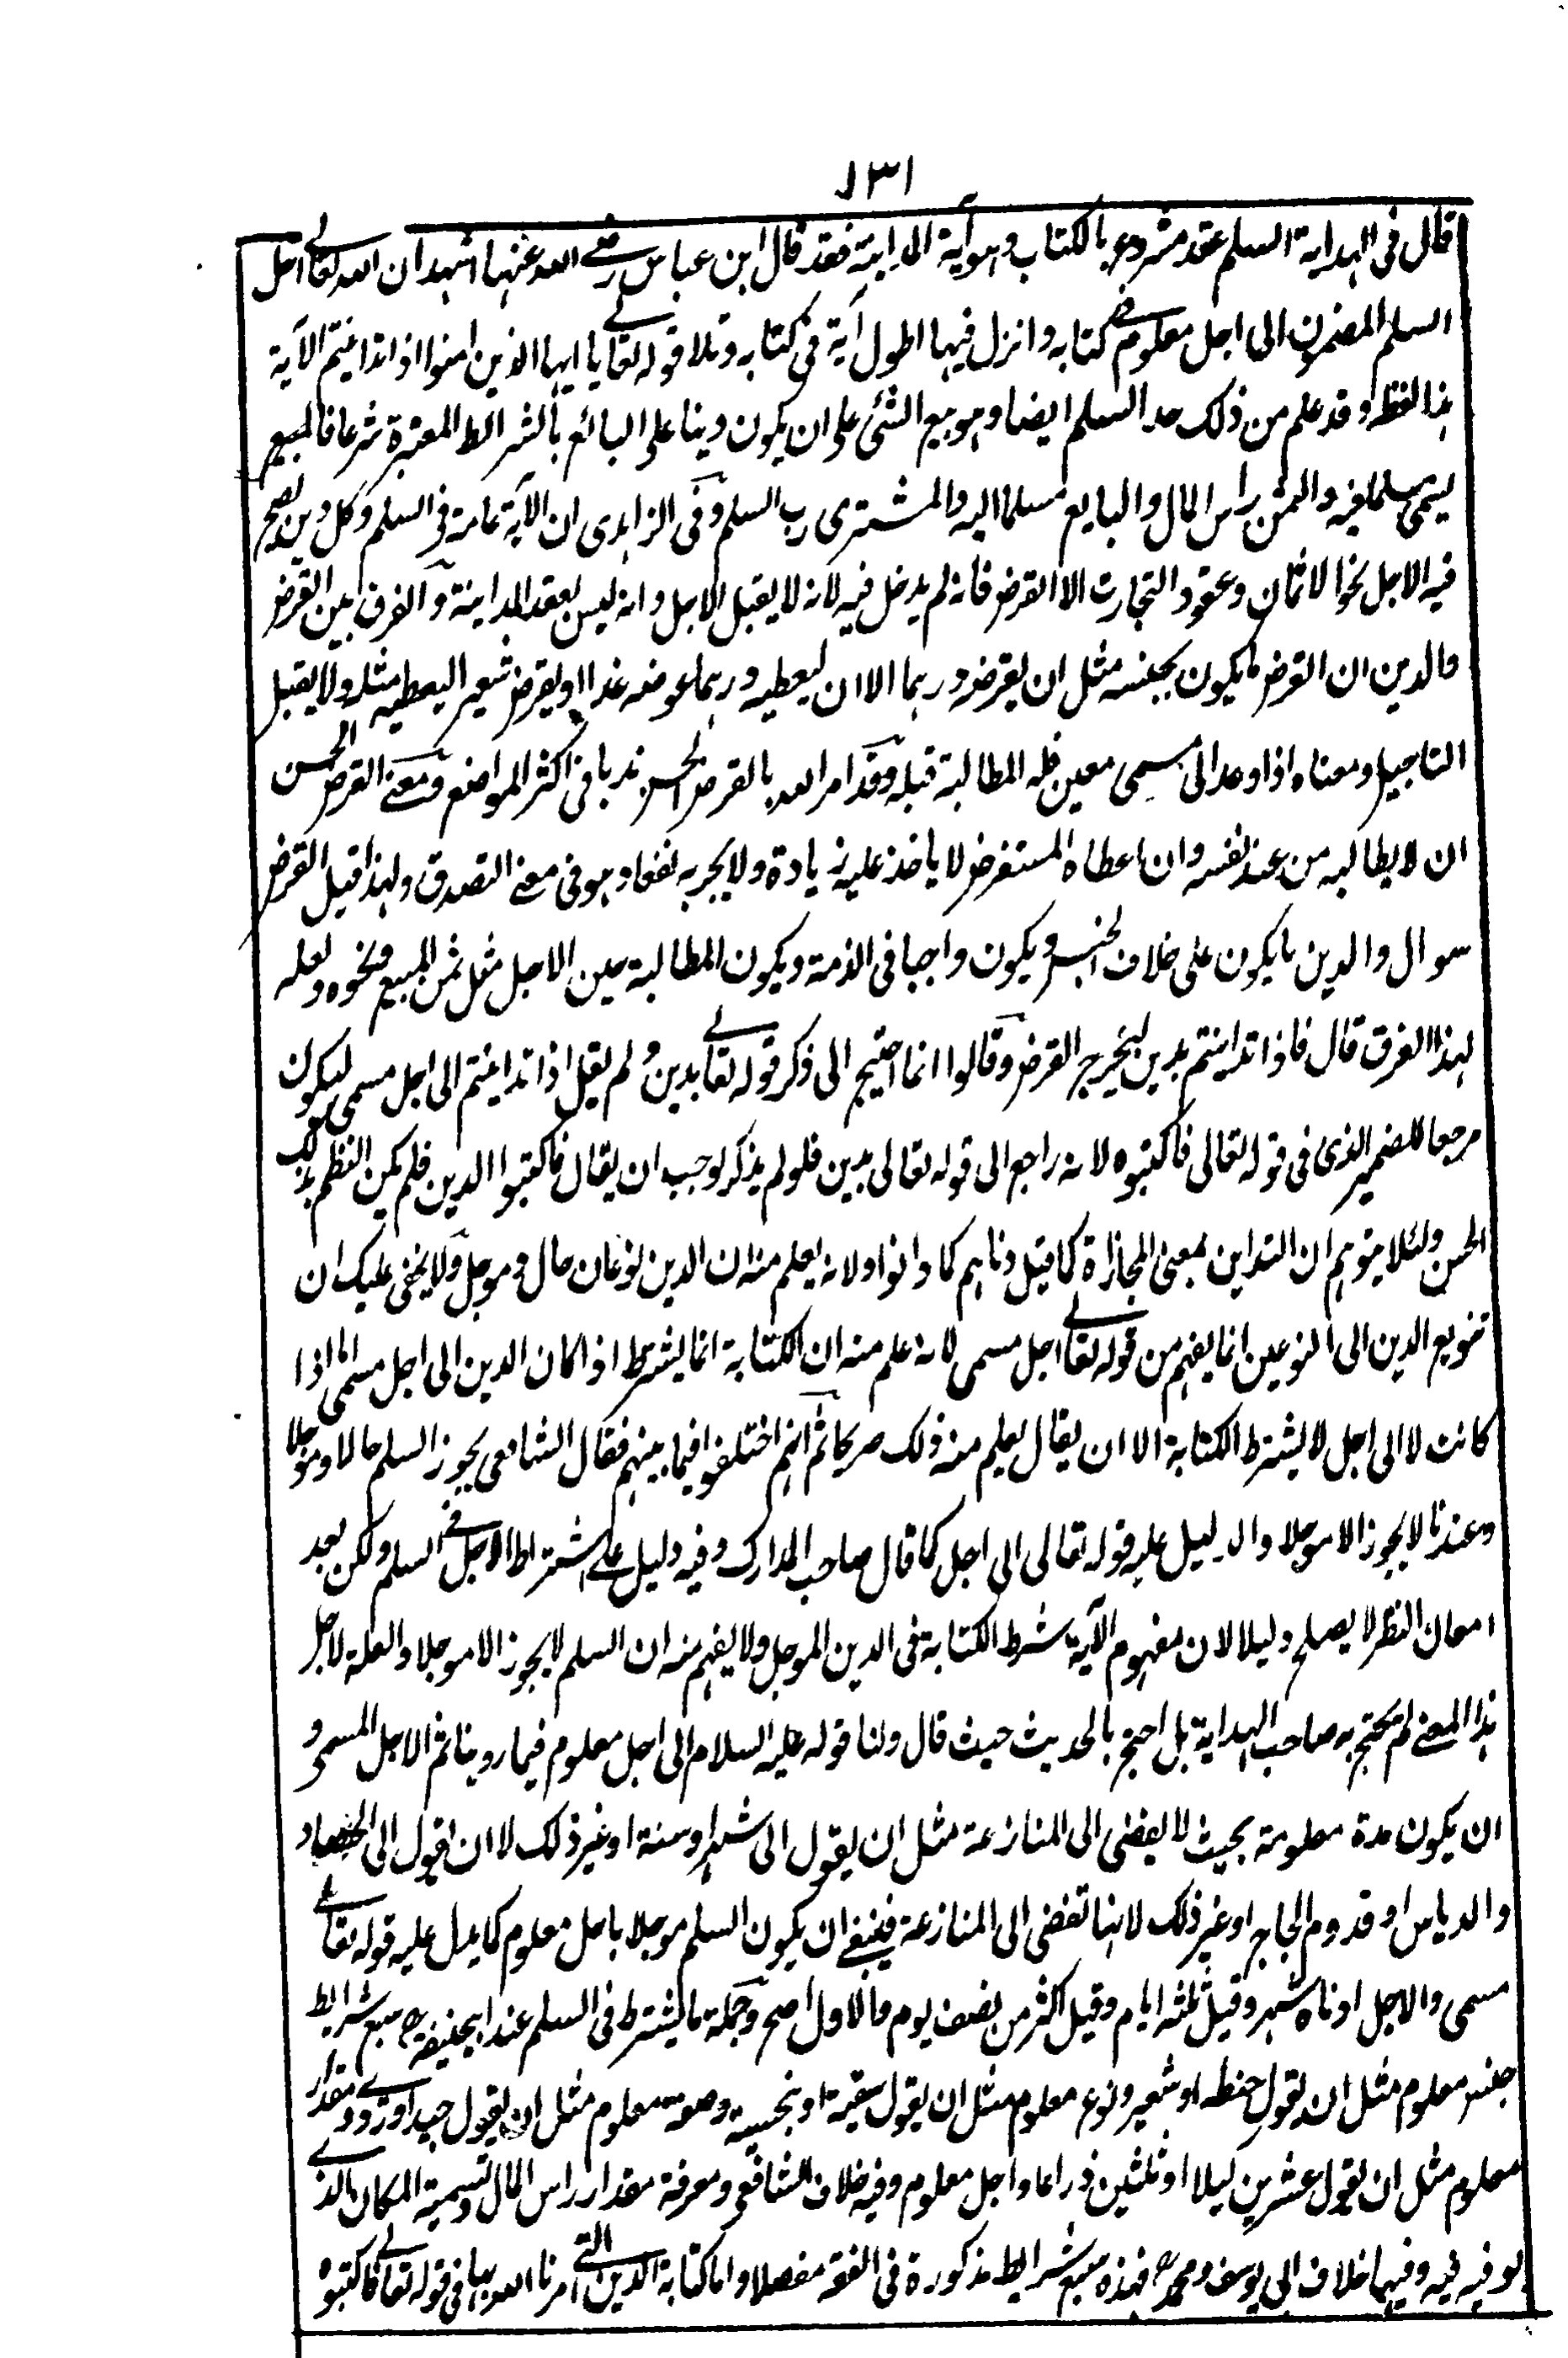 ١٣١
قال فى الهداية السلم عقد مشروع بالكتاب وهو آية المداينة فقد قال ابن عباس رضى الله عنهما اشهد ان الله تعالى احل
السلم المضمون الى اجل معلوم فى كتابه وانزل فيها اطول آية فى كتابه وتلا قوله تعالى يا ايها الذين امنوا اذا تداينتم الآية
هذا لفظه وقد علم من ذلك حد السلم ايضا وهو بيع الشئ على ان يكون دينا على البائع بالشرائط المعتبرة شرعا فالمبيع
يسمى مسلما فيه والثمن راس المال والبايع مسلما اليه والمشترى رب السلم وفى الزاهدى ان الآية عامة فى السلم وكل دين يصح
فيه الاجل نحو الاثمان وعقود التجارت الا القرض فانه لم يدخل فيه لانه لا يقبل الاجل وانه ليس بعقد المداينة والفرق بين القرض
والدين ان القرض ما يكون بجنسه مثل ان يقرضه درهما الا ان ليعطيه درهما عوضه غدا او يقرض شعير اليعطيه مثله ولا يقبل
التاجيل ومعناه اذا وعد الى مسمى معين فله المطالبة قبله وقد امر الله بالقرض الحسن ندبا فى اكثر المواضع ومعنى القرض الحسن
ان لا يطالبه من عند نفسه وان اعطاه المستقرض لا ياخذ عليه زيادة ولا يجر به نفعا وهو فى معنى التصدق ولهذا قيل القرض
سوال والدين ما يكون على خلاف الجنس ويكون واجبا فى الذمة ويكون المطالبة حين الاجل مثل ثمن المبيع ونحوه ولعله
لهذا الفرق قال فاذا تداينتم بدين ليخرج القرض وقالوا انما احتيج الى ذكر قوله تعالى بدين ولم يقل اذا تداينتم الى اجل مسمى ليكون
مرجعا للضمير الذى فى قوله تعالى فاكتبوه لانه راجع الى قوله تعالى بدين فلو لم يذكر لوجب ان يقال فاكتبوا الدين فلم يكن النظم بذلك
الحسن ولئلا يتوهم ان التداين بمعنى المجازاة كما قيل دناهم كما دانوا ولانه يعلم منه ان الدين نوعان حال وموجل ولا يخفى عليك ان
تنويع الدين الى النوعين انما يفهم من قوله تعالى اجل مسمى لانه علم منه ان الكتابة انما يشترط اذا كان الدين الى اجل مسمى اما اذا
كانت لا الى اجل لا يشترط الكتابة الا ان يقال يعلم منه ذلك صريحا ثم انهم اختلفوا فيما بينهم فقال الشافعى يجوز السلم حالا وموجلا
وعندنا لا يجوز الا موجلا والدليل عليه قوله تعالى الى اجل كما قال صاحب المدارك وفيه دليل على اشتراط الاجل فى السلم ولكن بعد
امعان النظر لا يصلح دليلا لان مفهوم الآية شرط الكتابة فى الدين الموجل ولا يفهم منه ان السلم لا يجوز الا موجلا والعلة لاجل
هذا المعنى لم يحتج به صاحب الهداية بل احتج بالحديث حيث قال ولنا قوله عليه السلام الى اجل معلوم فيما روينا ثم الاجل المسمى و
ان يكون مدة معلومة بحيث لا يفضى الى المنازعة مثل ان يقول الى شهر او سنة او غير ذلك لا ان يقول الى الحصاد
والدياس او قدوم الحاج او غير ذلك لانها تفضى الى المنازعة فينبغى ان يكون السلم موجلا باجل معلوم كما يدل عليه قوله تعالى
مسمى والاجل ادناه شهر وقيل ثلثه ايام وقيل اكثر من نصف يوم والاول اصح وجملة ما يشترط فى السلم عند ابيحنيفة رح سبع شرايط
جنس معلوم مثل ان يقول حنطه او شعير ونوع معلوم مثل ان يقول سقية او بخسية وصفة معلوم مثل ان يقول جيد او ردى ومقدار
معلوم مثل ان يقول عشرين كيلا او ثلثين ذراعا واجل معلوم وفيه خلاف للشافعى ومعرفة مقدار راس المال وتسمية المكان الذى
يوفيه فيه وفيهما خلاف ابى يوسف ومحمد رح فهذه سبع شرايط مذكورة فى الفقه مفصلا واما كتابة الدين التى امرنا الله بها فى قوله تعالى فاكتبوه